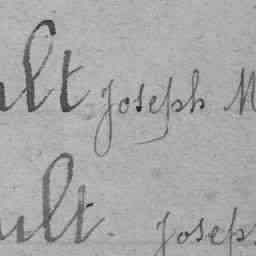 lt Joseph M
ult. Joseph